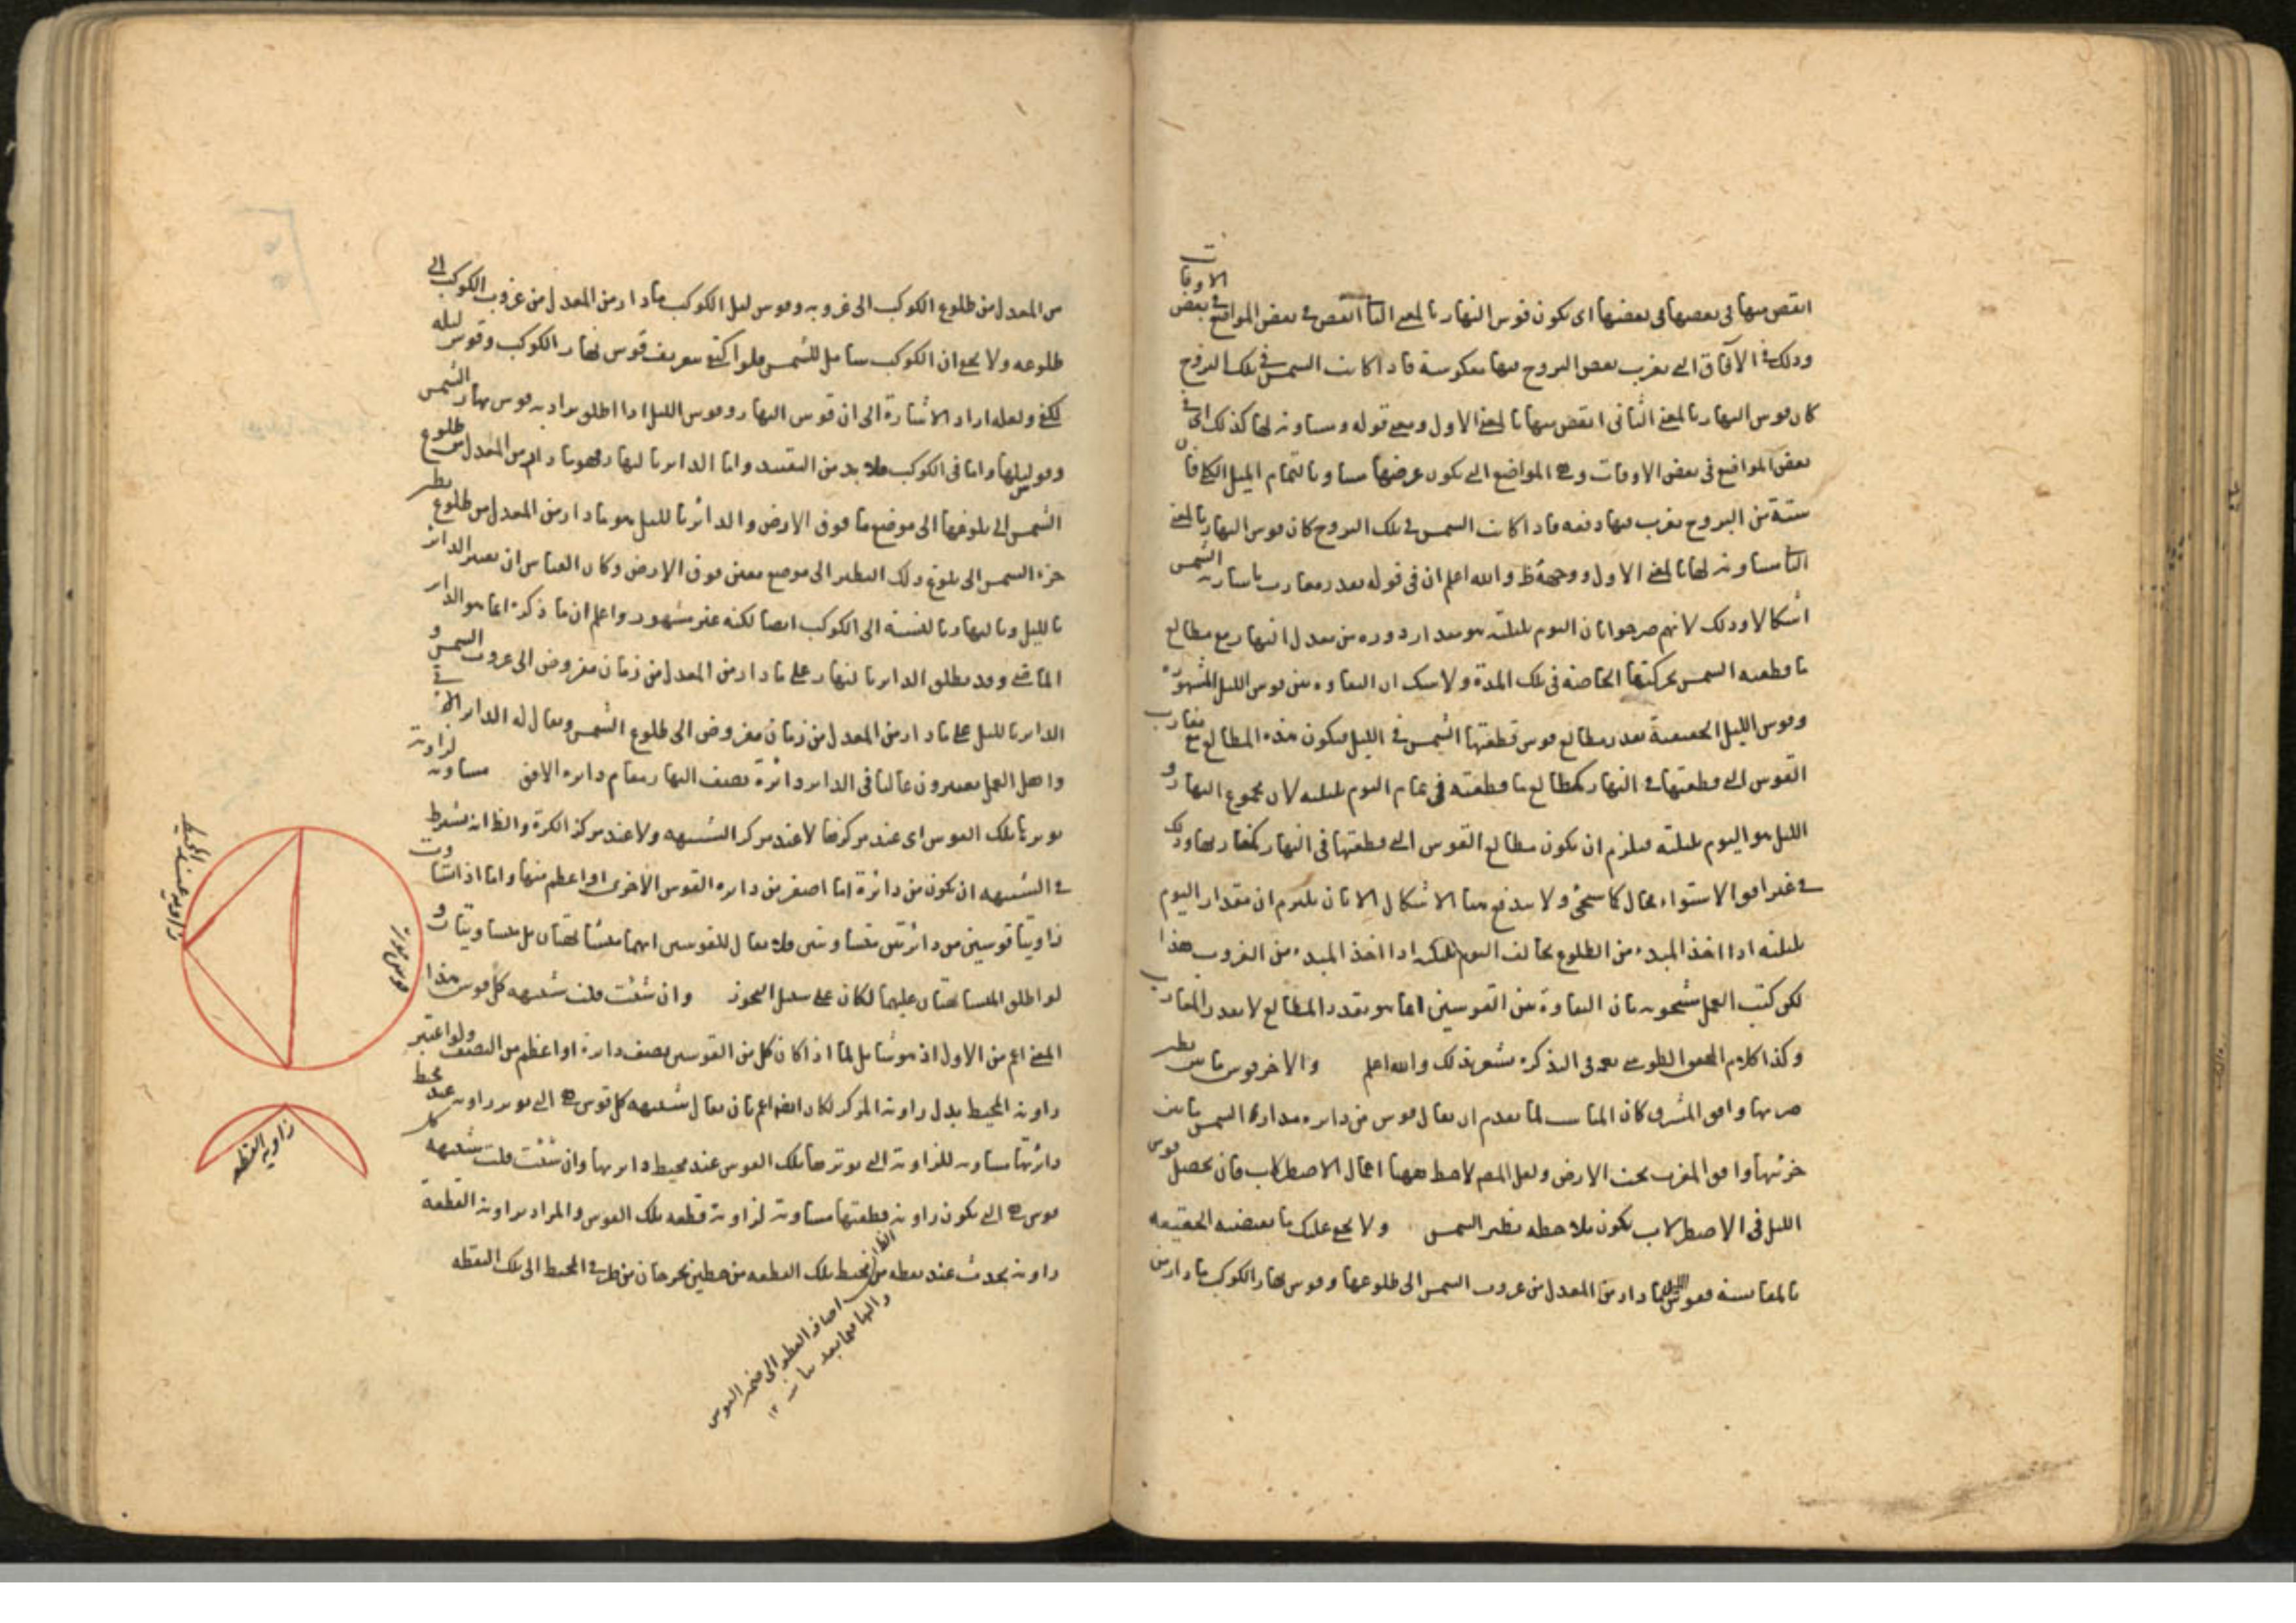 انقص منها في بعضها اي يكون قوس النهار بالمعنى الثاني انقص في بعض المواضع في بعض
الاوقات
وذلك في الآفاق التي تغرب بعض البروج فيها معكوسة فاذا كانت الشمس في تلك البروج
كان قوس النهار بالمعنى الثاني انقص منها بالمعنى الاول ومعنى قوله ومساوية لها كذلك اي في
بعض المواضع في بعض الاوقات وهي المواضع التي يكون عرضها مساويا لتمام الميل الكلي فان
ستة من البروج تغرب فيها دفعة فاذا كانت الشمس في تلك البروج كان قوس النهار بالمعنى
الثاني مساوية لها بالمعنى الاول ووجهه ظ والله اعلم ان في قوله بقدر مغارب ما سارته الشمس
اشكالا وذلك لانهم صرحوا بان اليوم بليلته هو مقدار دورة من معدل النهار مع مطالع
ما قطعته الشمس بحركتها الخاصة في تلك المدة ولا شك ان التفاوت بين قوس الليل المشهورة
وقوس الليل الحقيقية بقدر مطالع قوس قطعتها الشمس في الليل فيكون هذه المطالع مع مغارب
القوس التي قطعتها في النهار كمطالع ما قطعته في تمام اليوم بليلته لان مجموع النهار و
الليل هو اليوم بليلته فيلزم ان يكون مطالع القوس التي قطعتها في النهار كمغاربها وذلك
في غير افق الاستواء محال كما سيجئ ولا يندفع هذا الاشكال الا بان يلتزم ان مقدار اليوم
بليلته اذا اخذ المبدء من الطلوع يخالف اليوم بليلته اذا اخذ المبدء من الغروب هذا
لكن كتب العمل مشحونة بان التفاوت بين القوسين انما هو بقدر المطالع لا بقدر المغارب
وكذا كلام المحقق الطوسي في التذكرة مشعر بذلك والله اعلم والاخر قوس ما بين نظير
جزئها وافق المشرق كان المناسب لما تقدم ان يقال قوس من دائرة مدار الشمس ما بين
جزئها وافق المغرب تحت الارض ولعل المص لاحظ ههنا اعمال الاصطرلاب فان تحصيل قوس
الليل في الاصطرلاب يكون بملاحظة نظير الشمس ولا يخفى عليك ما يقتضيه الحقيقة
بالمقايسة فقوس الليل ما دار من المعدل من غروب الشمس الى طلوعها وقوس نهار الكوكب ما دار من
من المعدل من طلوع الكوكب الى غروبه وقوس ليل الكوكب ما دار من المعدل من غروب الكوكب الى
طلوعه ولا يخفى ان الكوكب شامل للشمس فلو اكتفى بتعريف قوس نهار الكوكب وقوس ليله
لكفى ولعله اراد الاشارة الى ان قوس النهار وقوس الليل اذا اطلق يراد به قوس نهار الشمس
وقوس ليلها واما في الكوكب فلا بد من التقييد واما الدائر بالنهار فهو ما دار من المعدل من طلوع
الشمس الى بلوغها الى موضع ما فوق الارض والدائر بالليل هو ما دار من المعدل من طلوع نظير
جزء الشمس الى بلوغ ذلك النظير الى موضع معين فوق الارض وكان القياس ان يعتبر الدائر
بالليل وبالنهار بالنسبة الى الكوكب ايضا لكنه غير مشهور واعلم ان ما ذكره انما هو الدائر
الماضي وقد يطلق الدائر بالنهار على ما دار من المعدل من زمان مفروض الى غروب الشمس و
الدائر بالليل على ما دار من المعدل من زمان مفروض الى طلوع الشمس ويقال له الدائر الباقي
واهل العمل يعتبرون غالبا في الدائر دائرة نصف النهار مقام دائرة الافق مساوية لزاوية
يوترها تلك القوس اي عند مركزها لا عند مركز الشبيهة ولا عند مركز الكرة والظ انه يشترط
في الشبيهة ان يكون من دائرة اما اصغر من دائرة القوس الاخرى او اعظم منها واما اذا تساوت
زاويتا قوسين من دائرتين متساويتين فلا يقال للقوسين انهما متشابهتان بل متساويتان و
لو اطلق المتشابهتان عليهما لكان على سبيل التجوز وان شئت قلت شبيهة كل قوس هذا
المعنى اعم من الاول اذ هو شامل لما اذا كان كل من القوسين نصف دائرة او اعظم من النصف ولو اعتبر
زاوية المحيط بدل زاوية المركز لكان ايضا اعم بان يقال شبيهة كل قوس هي التي يوتر زاوية عند محيط
دائرتها مساوية للزاوية التي يوترها تلك القوس عند محيط دائرتها وان شئت قلت شبيهة كل
قوس هي التي يكون زاوية قطعتها مساوية لزاوية قطعة تلك القوس والمراد بزاوية القطعة
زاوية تحدث عند نقطة من محيط تلك القطعة من خطين يخرجان من طرفي المحيط الى تلك النقطة
زاوية عند المحيط
زاوية القطعه